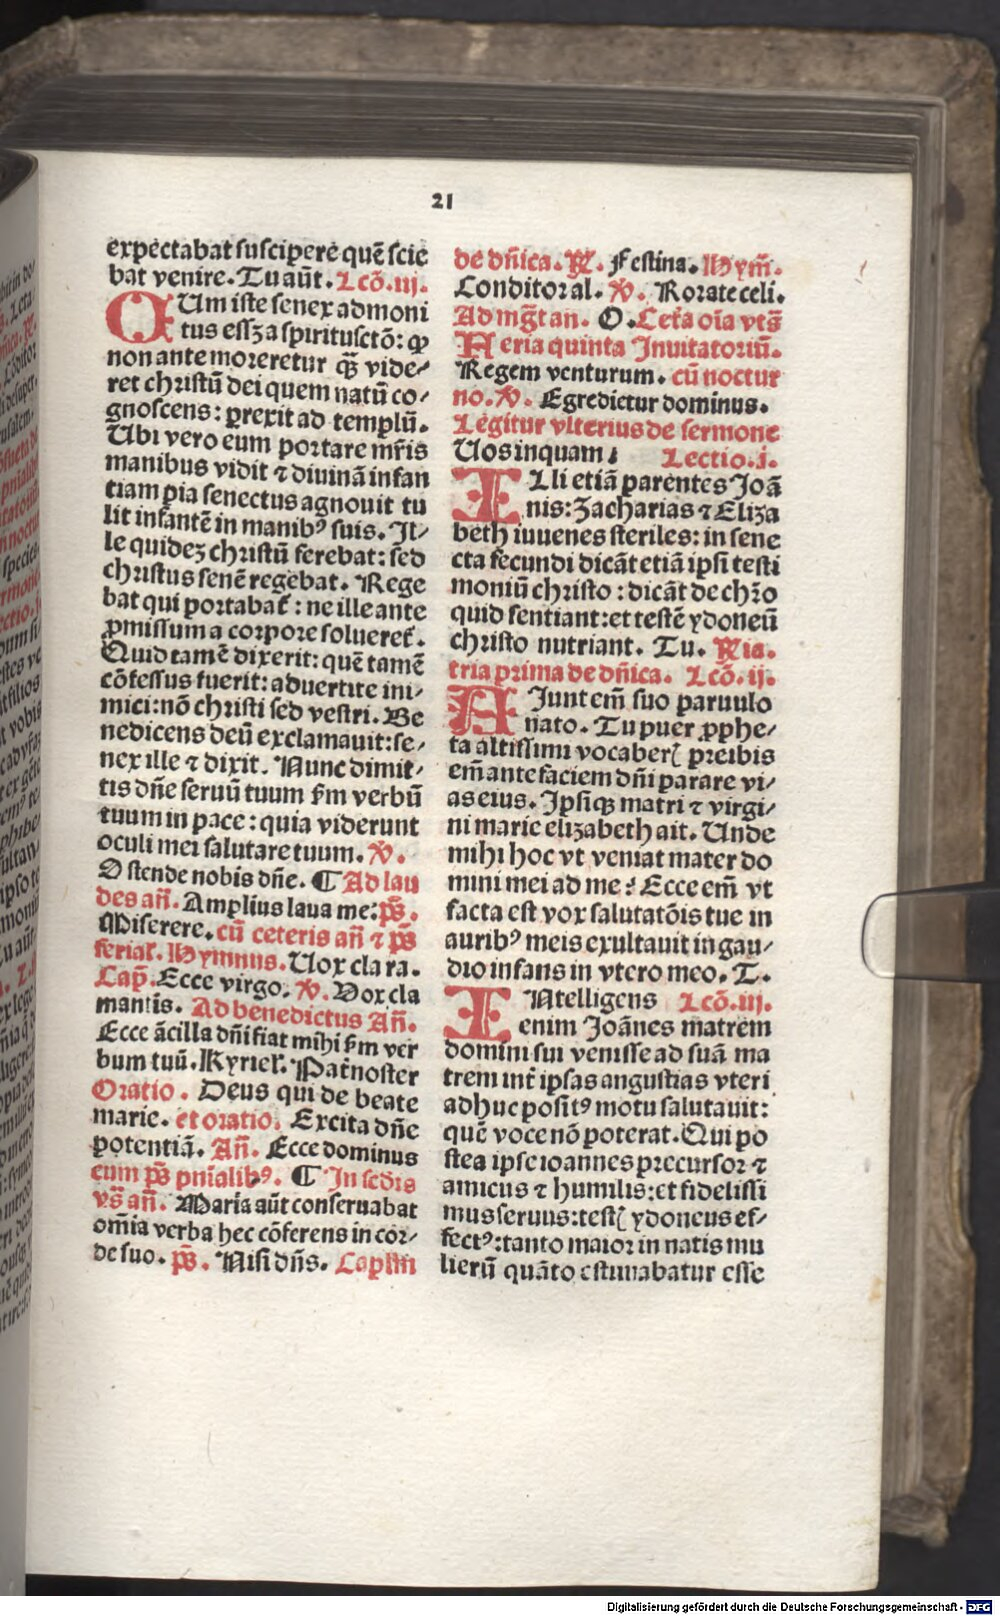 21
expectabat suscipere quē scie
bat venire. Tu aūt. Lcō. iij.
CUm iste senex admoni
tus essꝫ a spiritu sctō: ꝙ
non ante moreretur qᷓꝫ vide-
ret christū dei quem natū co-
gnoscens: ꝑrexit ad templū.
Ubi vero eum portare mr̄is
manibus vidit ⁊ diuinā infan
tiam pia senectus agnouit tu
lit infantē in manibꝰ suis. Il-
le quideꝫ christū ferebat: sed
christus senē regebat. Rege
bat qui portabat᷑: ne ille ante
ꝓmissum a corpore solueret᷑.
Quid tamē dixerit: quē tamē
cōfessus fuerit: aduertite ini-
mici: nō christi sed vestri. Be
nedicens deū exclamauit: se-
nex ille ⁊ dixit. Nunc dimit-
tis dn̄e seruū tuum ẜm verbū
tuum in pace: quia viderunt
oculi mei salutare tuum. ℣.
Ostende nobis dn̄e. ¶ Ad lau
des an̄. Amplius laua me: ps̄.
Miserere. cū ceteris an̄ ⁊ ps̄
ferial᷑. Hymnus. Uox clara.
Cap̄. Ecce virgo. ℣. Vox cla
mantis. Ad benedictus An̄.
Ecce ācilla dn̄i fiat mihi ẜm ver
bum tuū. Kyriel᷑. Pat̄noster
Oratio. Deus qui de beate
marie. et oratio. Excita dn̄e
potentiā. An̄. Ecce dominus
cum ps̄ pn̄ialibꝰ. ¶ In sedis
vs̄ an̄. Maria aūt conseruabat
om̄ia verba hec cōferens in cor-
de suo. ps̄. Nisi dn̄s. Caplm̄
de dn̄ica. ℟. Festina. Hym̄.
Conditor al. ℣. Rorate celi.
Ad mg̅t an. O. Cet᷑a oīa vts̄
Feria quinta Inuitatoriū.
Regem venturum. cū noctur
no. ℣. Egredietur dominus.
Legitur vlterius de sermone
Uos inquam. Lectio. j.
ILli etiā parentes Joā
nis: Zacharias ⁊ Eliza
beth iuuenes steriles: in sene
cta fecundi dicāt etiā ipsi testi
moniū christo: dicāt de chr̄o
quid sentiant: et testē ydoneū
christo nutriant. Tu. ℟ia.
tria prima de dn̄ica. Lcō. ij.
AIunt em̄ suo paruulo
nato. Tu puer ꝓphe-
ta altissimi vocaberꝭ preibis
em̄ ante faciem dn̄i parare vi-
as eius. Ipsiqꝫ matri ⁊ virgi-
ni marie elizabeth ait. Unde
mihi hoc vt veniat mater do
mini mei ad me? Ecce em̄ vt
facta est vox salutatōis tue in
auribꝰ meis exultauit in gau-
dio infans in vtero meo. T.
INtelligens Lcō. iij.
enim Joānes matrem
domini sui venisse ad suā ma
trem int̄ ipsas angustias vteri
adhuc positꝰ motu salutauit:
quē voce nō poterat. Qui po
stea ipse ioannes precursor ⁊
amicus ⁊ humilis: et fidelissi
mus seruus: testꝭ ydoneus ef-
fectꝰ: tanto maior in natis mu
lierū quāto estimabatur esse
Digitalisierung gefördert durch die Deutsche Forschungsgemeinschaft - DFG